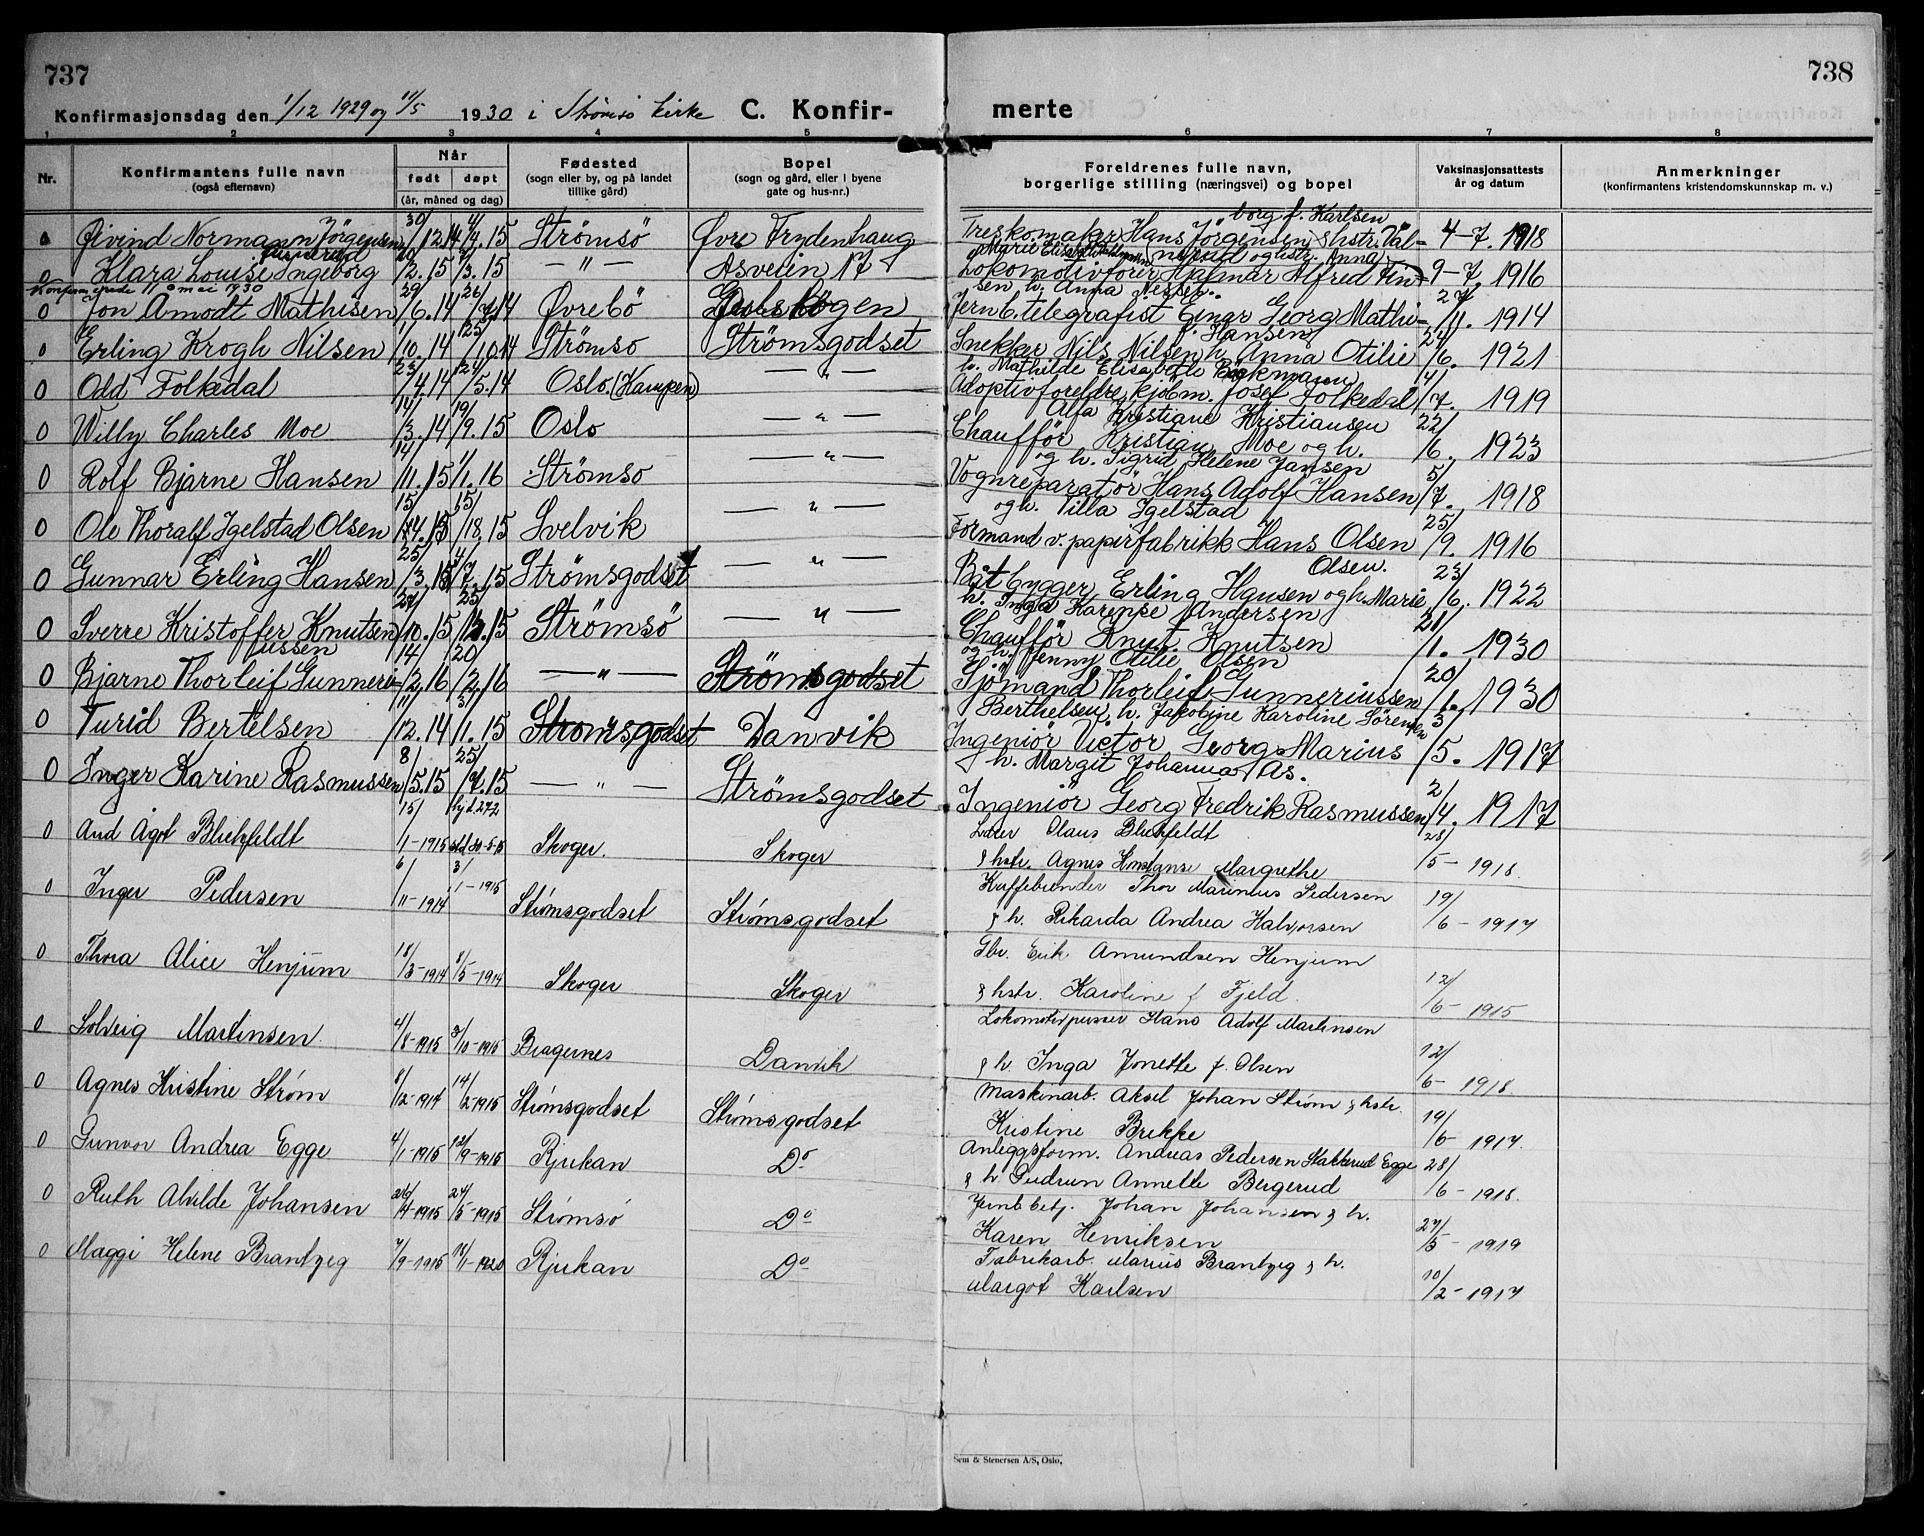 737
738
Konfirmasjonsdag den 1/12 1929 og 11/5 1930 i Strømsø kirke C. Konfirmerte
1 2 3 4 5 6 7 8
Nr. Konfirmantens fulle navn (også efternavn) Når født døpt (år, måned og dag) Fødested (sogn eller by, og på landet tillike gård) Bopel (sogn og gård, eller i byene gate og hus-nr.) Foreldrenes fulle navn, borgerlige stilling (næringsvei) og bopel Vaksinasjonsattests år og datum Anmerkninger (konfirmantens kristendomskunnskap m. v.)
0 Øivind Normann Jörgensen 30/12.14 4/4.15 Strömsö Øvre Frydenhaug Treskomaker Hans Jörgensen & hstr. Valborg f. Karlsen 4-7. 1918
0 Klara Louise Ingeborg 2.15 /3.15 —„— Åsveien 17 og hstr. Anna 9-7. 1916
Konfirmerede 11 mai 1930
0 Jon Amodt Mathisen 29/6.14 26/7.14 Øvrebö Lokomotivfører Halmar Alfred Finsen h. Anna 27/11. 1914
Jernb.telegrafist Einar Georg Mathi-
0 Erling Krogh Nilsen 1/10.14 25/10.14 Strömsö Strømsgodset Snekker Nils Nilsen h. Anna Otilie Hansen 24/6. 1921
0 Odd Folkedal 23/4.14 24/5.14 Oslo. (Kampen) —„— h. Mathilde Elisabeth Adoptivforeldre kjöbm. Josef Folkedal 14/7. 1919
0 Willy Charles Moe 14/3.14 19/9.15 Oslo —„— Alfa Kristiane Kristiansen Chaufför Kristian Moe og h. 22/6. 1923
0 Rolf Bjarne Hansen 14/11.15 1/1.16 Strömsö —„— og h. Sigrid Helene Jansen Vognreparatör Hans Adolf Hansen 5/7. 1918
0 Ole Thoralf Igelstad Olsen 15/4.15 15/8.15 Svelvik —„— og h. Villa Igelstad Formand v. papirfabrikk Hans Olsen 25/9. 1916
0 Gunnar Erling Hansen 25/3.15 4/7.15 Strømsgodset —„— Båtbygger Erling Hansen og h. Marie Olsen. 23/6. 1922
0 Sverre Kristoffer Knutsen /10.15 25/12.15 Strömsö —„— h. Inga Andersen Chaufför Knut Knutsen 21/1. 1930
0 Bjarne Thorleif Gunneriussen 14/2.16 20/2.16 —„— Strömsgodset og h. Jenny Otilie Olsen Sjömand Thorleif Gunneriussen 20/1. 1930
0 Turid Bertelsen 11/12.14 31/1.15 Strømsgodset Danvik Berthelsen, h. Jakobine Karoline Sörensen Ingeniör Victor Georg Marius 3/5. 1917
0 Inger Karine Rasmussen 8/5.15 25/7.15 —„— Strömsgodset h. Margit Johanna Ås. Ingeniör Georg Fredrik Rasmussen 2/4. 1917
0 Aud Agot Blichfeldt 15/1-1915 Skoger. Skoger Lærer Claus Blichfeldt & hstr. Agnes Konstanse Margrethe 28/5-1918.
0 Inger Pedersen 6/11-1914 3/1-1915 Strømsgodset Strømsgodset Kaffebrender Thor Marinius Pedersen & h. Rikarda Andrea Halvorsen 19/6-1917
0 Thora Alice Henjum 18/3-1914 /5-1914 Skoger Skoger Gbr. Erik Amundsen Henjum & hstr. Karoline f Fjeld. 12/6-1915
0 Solveig Martinsen. 4/8-1915 3/10-1915 Bragernes Danvik Lokomotivpusser Hans Adolf Martinsen & h. Inga Jonette f. Olsen 12/6-1918.
0 Agnes Kristine Strøm /12-1914 14/2-1915 Strømsgodset Strømsgodset Maskinarb. Aksel Johan Strøm & hstr. Kristine Brekke 19/6-1917.
0 Gunvor Andrea Egge 4/1-1915 12/9-1915 Rjukan Do Anleggsform. Andreas Pedersen Stakkerud Egge & h Gudrun Annette Bergerud 28/6-1918.
0 Ruth Alvilde Johansen 26/4-1915 24/5-1915 Strømsø Do Jernb.betj. Johan Johansen & h. Karen Henriksen 27/5-1919
0 Maggi Helene Brantzeg 7/9-1915 /1-1920 Rjukan Do Fabrikarb. Marius Brantzeg & h. Margot Karlsen 10/2-1917
Sem & Stenersen A/S, Oslo.